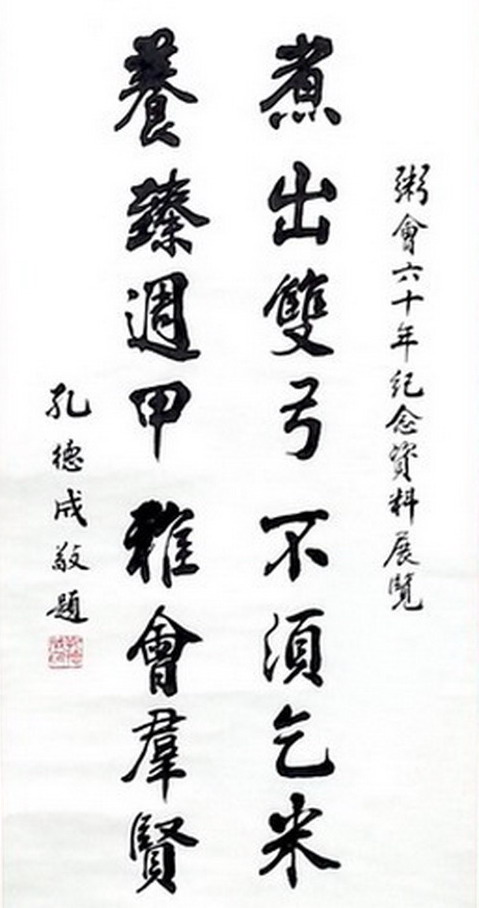 粥會六十年纪念資料展覽
煮出雙弓不須乞米
養臻週甲雅會羣賢
孔德成敬題